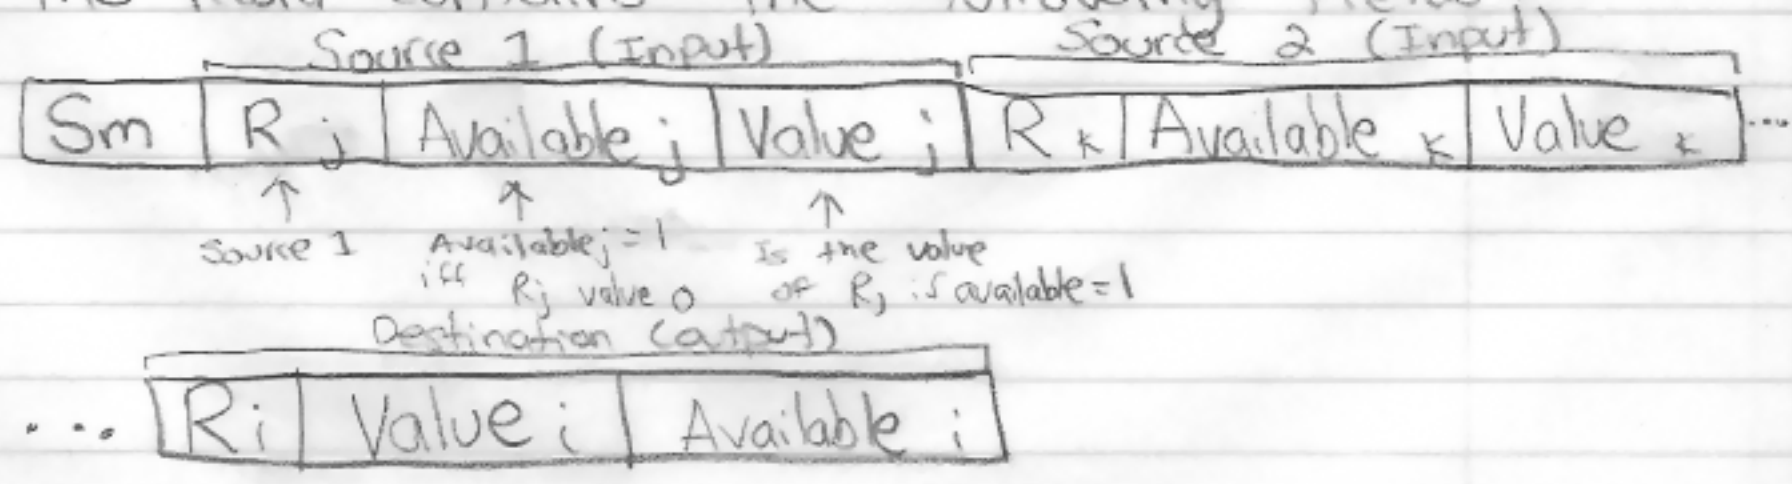 Source 1 (Input) Source 2 (Input)
Sm R j Available j Value j R k Available k Value k ...
Source 1 Available j = 1 Is the value
iff Rj value 0 of Rj if available = 1
Destination (output)
... Ri Value i Available i